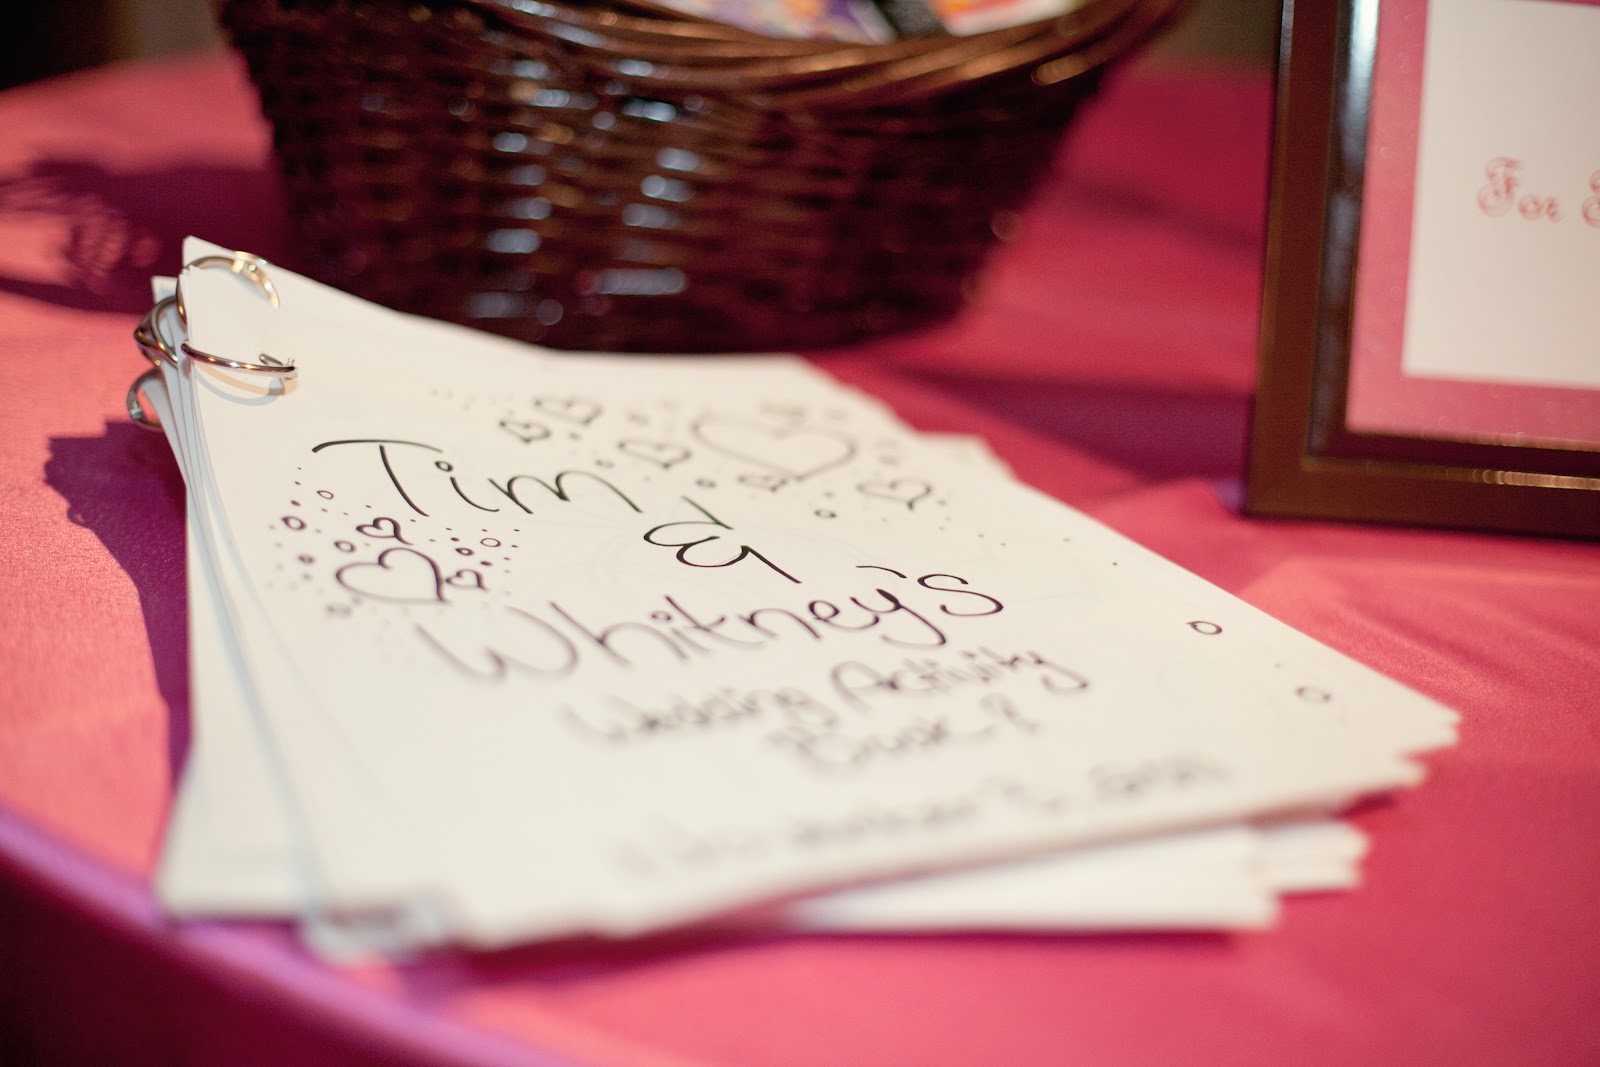 Tim
&
Whitney's
Wedding Activity
Book!
For